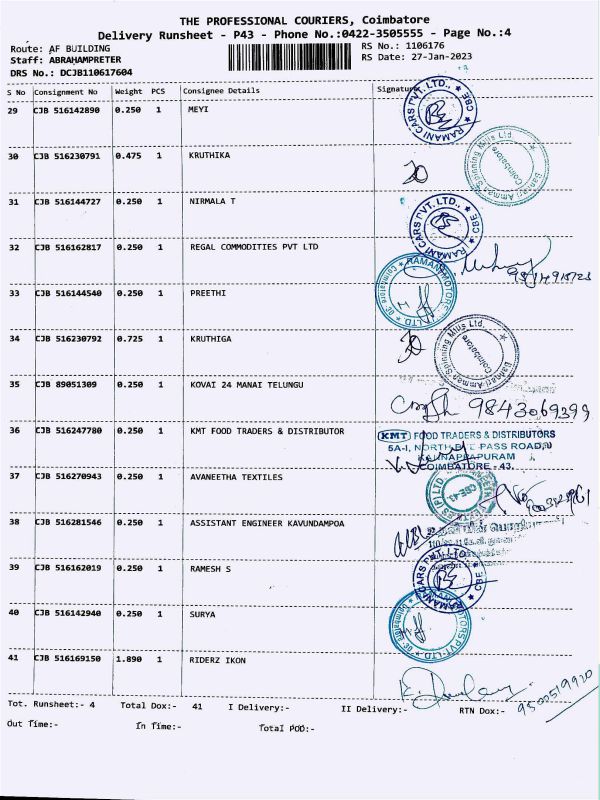 THE PROFESSIONAL COURIERS, Coimbatore
Delivery Runsheet - P43 - Phone No.:0422-3505555 - Page No.:4
Route: AF BUILDING RS No.: 1106176
Staff: ABRAHAMPRETER RS Date: 27-Jan-2023
DRS No.: DCJB110617604
S No Consignment No Weight PCS Consignee Details Signature
29 CJB 516142890 0.250 1 MEYI
RAMANI CARS PVT. LTD., ★ CBE ★
30 CJB 516230791 0.475 1 KRUTHIKA
Bannari Amman Spinning Mills Ltd. Coimbatore
31 CJB 516144727 0.250 1 NIRMALA T
RAMANI CARS PVT. LTD., ★ CBE ★
32 CJB 516162817 0.250 1 REGAL COMMODITIES PVT LTD
33 CJB 516144540 0.250 1 PREETHI
34 CJB 516230792 0.725 1 KRUTHIGA
Bannari Amman Spinning Mills Ltd. Coimbatore
35 CJB 89051309 0.250 1 KOVAI 24 MANAI TELUNGU
9843069399
36 CJB 516247780 0.250 1 KMT FOOD TRADERS & DISTRIBUTOR
KMT FOOD TRADERS & DISTRIBUTORS
COIMBATORE - 43.
37 CJB 516270943 0.250 1 AVANEETHA TEXTILES
CBE-43
38 CJB 516281546 0.250 1 ASSISTANT ENGINEER KAVUNDAMPOA
39 CJB 516162019 0.250 1 RAMESH S
RAMANI CARS PVT. LTD. ★ CBE ★
40 CJB 516142940 0.250 1 SURYA
41 CJB 516169150 1.890 1 RIDERZ IKON
Tot. Runsheet:- 4 Total Dox:- 41 I Delivery:- II Delivery:- RTN Dox:-
Out Time:- In Time:- Total POD:-